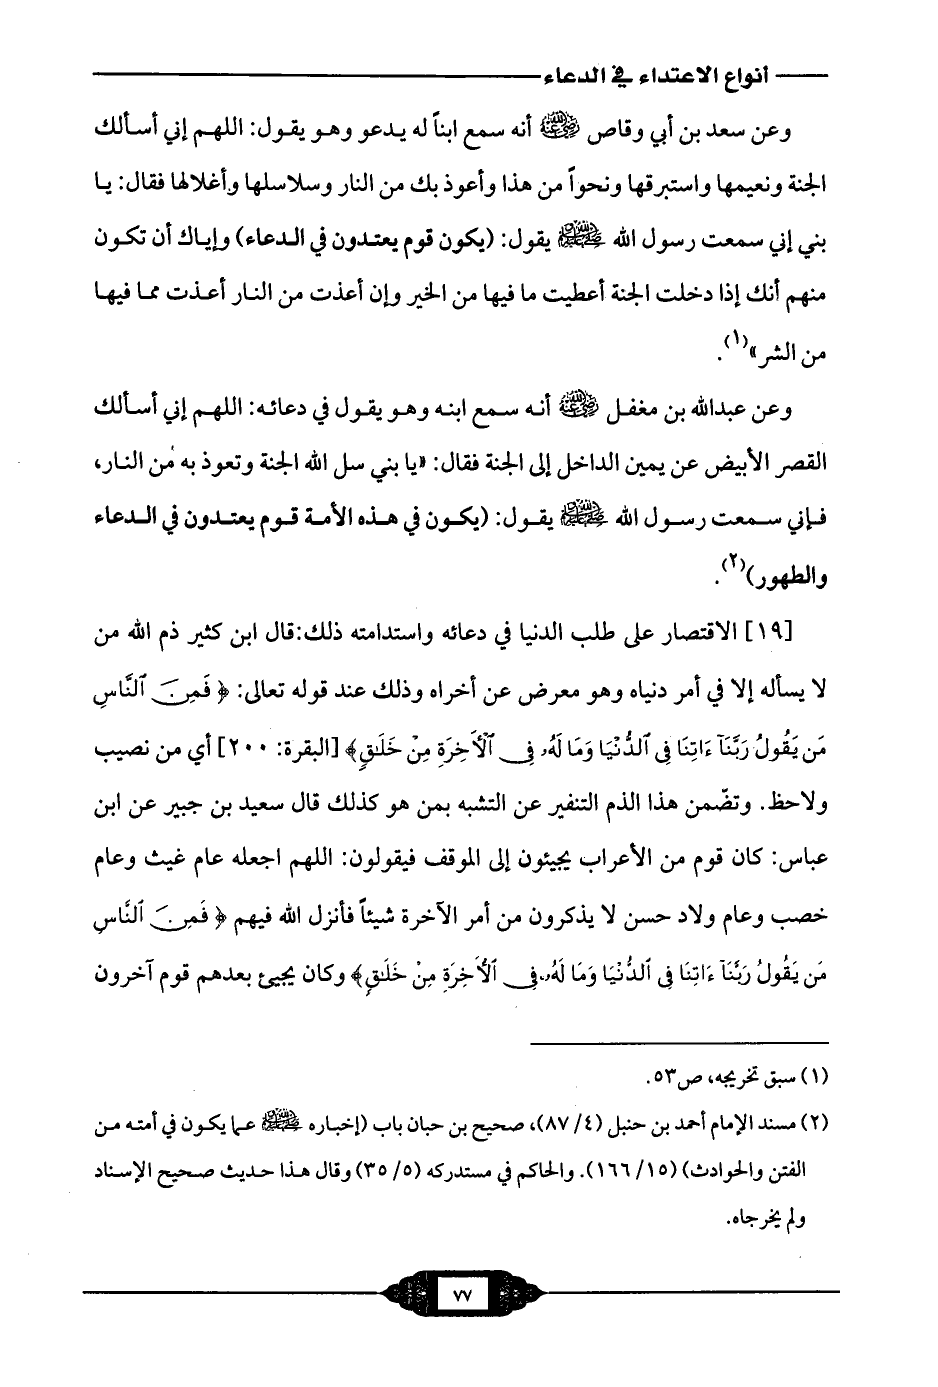 أنواع الاعتداء في الدعاء
وعن سعد بن أبي وقاص رضي الله عنه أنه سمع ابناً له يدعو وهو يقول: اللهم إني أسألك
الجنة ونعيمها واستبرقها ونحواً من هذا وأعوذ بك من النار وسلاسلها وأغلالها فقال: يا
بني إني سمعت رسول الله ﷺ يقول: (يكون قوم يعتدون في الدعاء) وإياك أن تكون
منهم أنك إذا دخلت الجنة أعطيت ما فيها من الخير وإن أعذت من النار أعذت مما فيها
من الشر»(١).
وعن عبدالله بن مغفل رضي الله عنه أنه سمع ابنه وهو يقول في دعائه: اللهم إني أسألك
القصر الأبيض عن يمين الداخل إلى الجنة فقال: «يا بني سل الله الجنة وتعوذ به من النار،
فإني سمعت رسول الله ﷺ يقول: (يكون في هذه الأمة قوم يعتدون في الدعاء
والطهور)(٢).
[١٩] الاقتصار على طلب الدنيا في دعائه واستدامته ذلك:قال ابن كثير ذم الله من
لا يسأله إلا في أمر دنياه وهو معرض عن أخراه وذلك عند قوله تعالى: ﴿ فَمِنَ ٱلنَّاسِ
مَن يَقُولُ رَبَّنَآ ءَاتِنَا فِى ٱلدُّنْيَا وَمَا لَهُۥ فِى ٱلْأَخِرَةِ مِنْ خَلَٰقٍ﴾ [البقرة: ٢٠٠] أي من نصيب
ولاحظ. وتضمن هذا الذم التنفير عن التشبه بمن هو كذلك قال سعيد بن جبير عن ابن
عباس: كان قوم من الأعراب يجيئون إلى الموقف فيقولون: اللهم اجعله عام غيث وعام
خصب وعام ولاد حسن لا يذكرون من أمر الآخرة شيئاً فأنزل الله فيهم ﴿ فَمِنَ ٱلنَّاسِ
مَن يَقُولُ رَبَّنَآ ءَاتِنَا فِى ٱلدُّنْيَا وَمَا لَهُۥ فِى ٱلْأَخِرَةِ مِنْ خَلَٰقٍ﴾ وكان يجيئ بعدهم قوم آخرون
(١) سبق تخريجه، ص٥٣.
(٢) مسند الإمام أحمد بن حنبل (٤/ ٨٧)، صحيح بن حبان باب (إخباره ﷺ عما يكون في أمته من
الفتن والحوادث) (١٥/ ١٦٦). والحاكم في مستدركه (٥/ ٣٥) وقال هذا حديث صحيح الإسناد
ولم يخرجاه.
٧٧